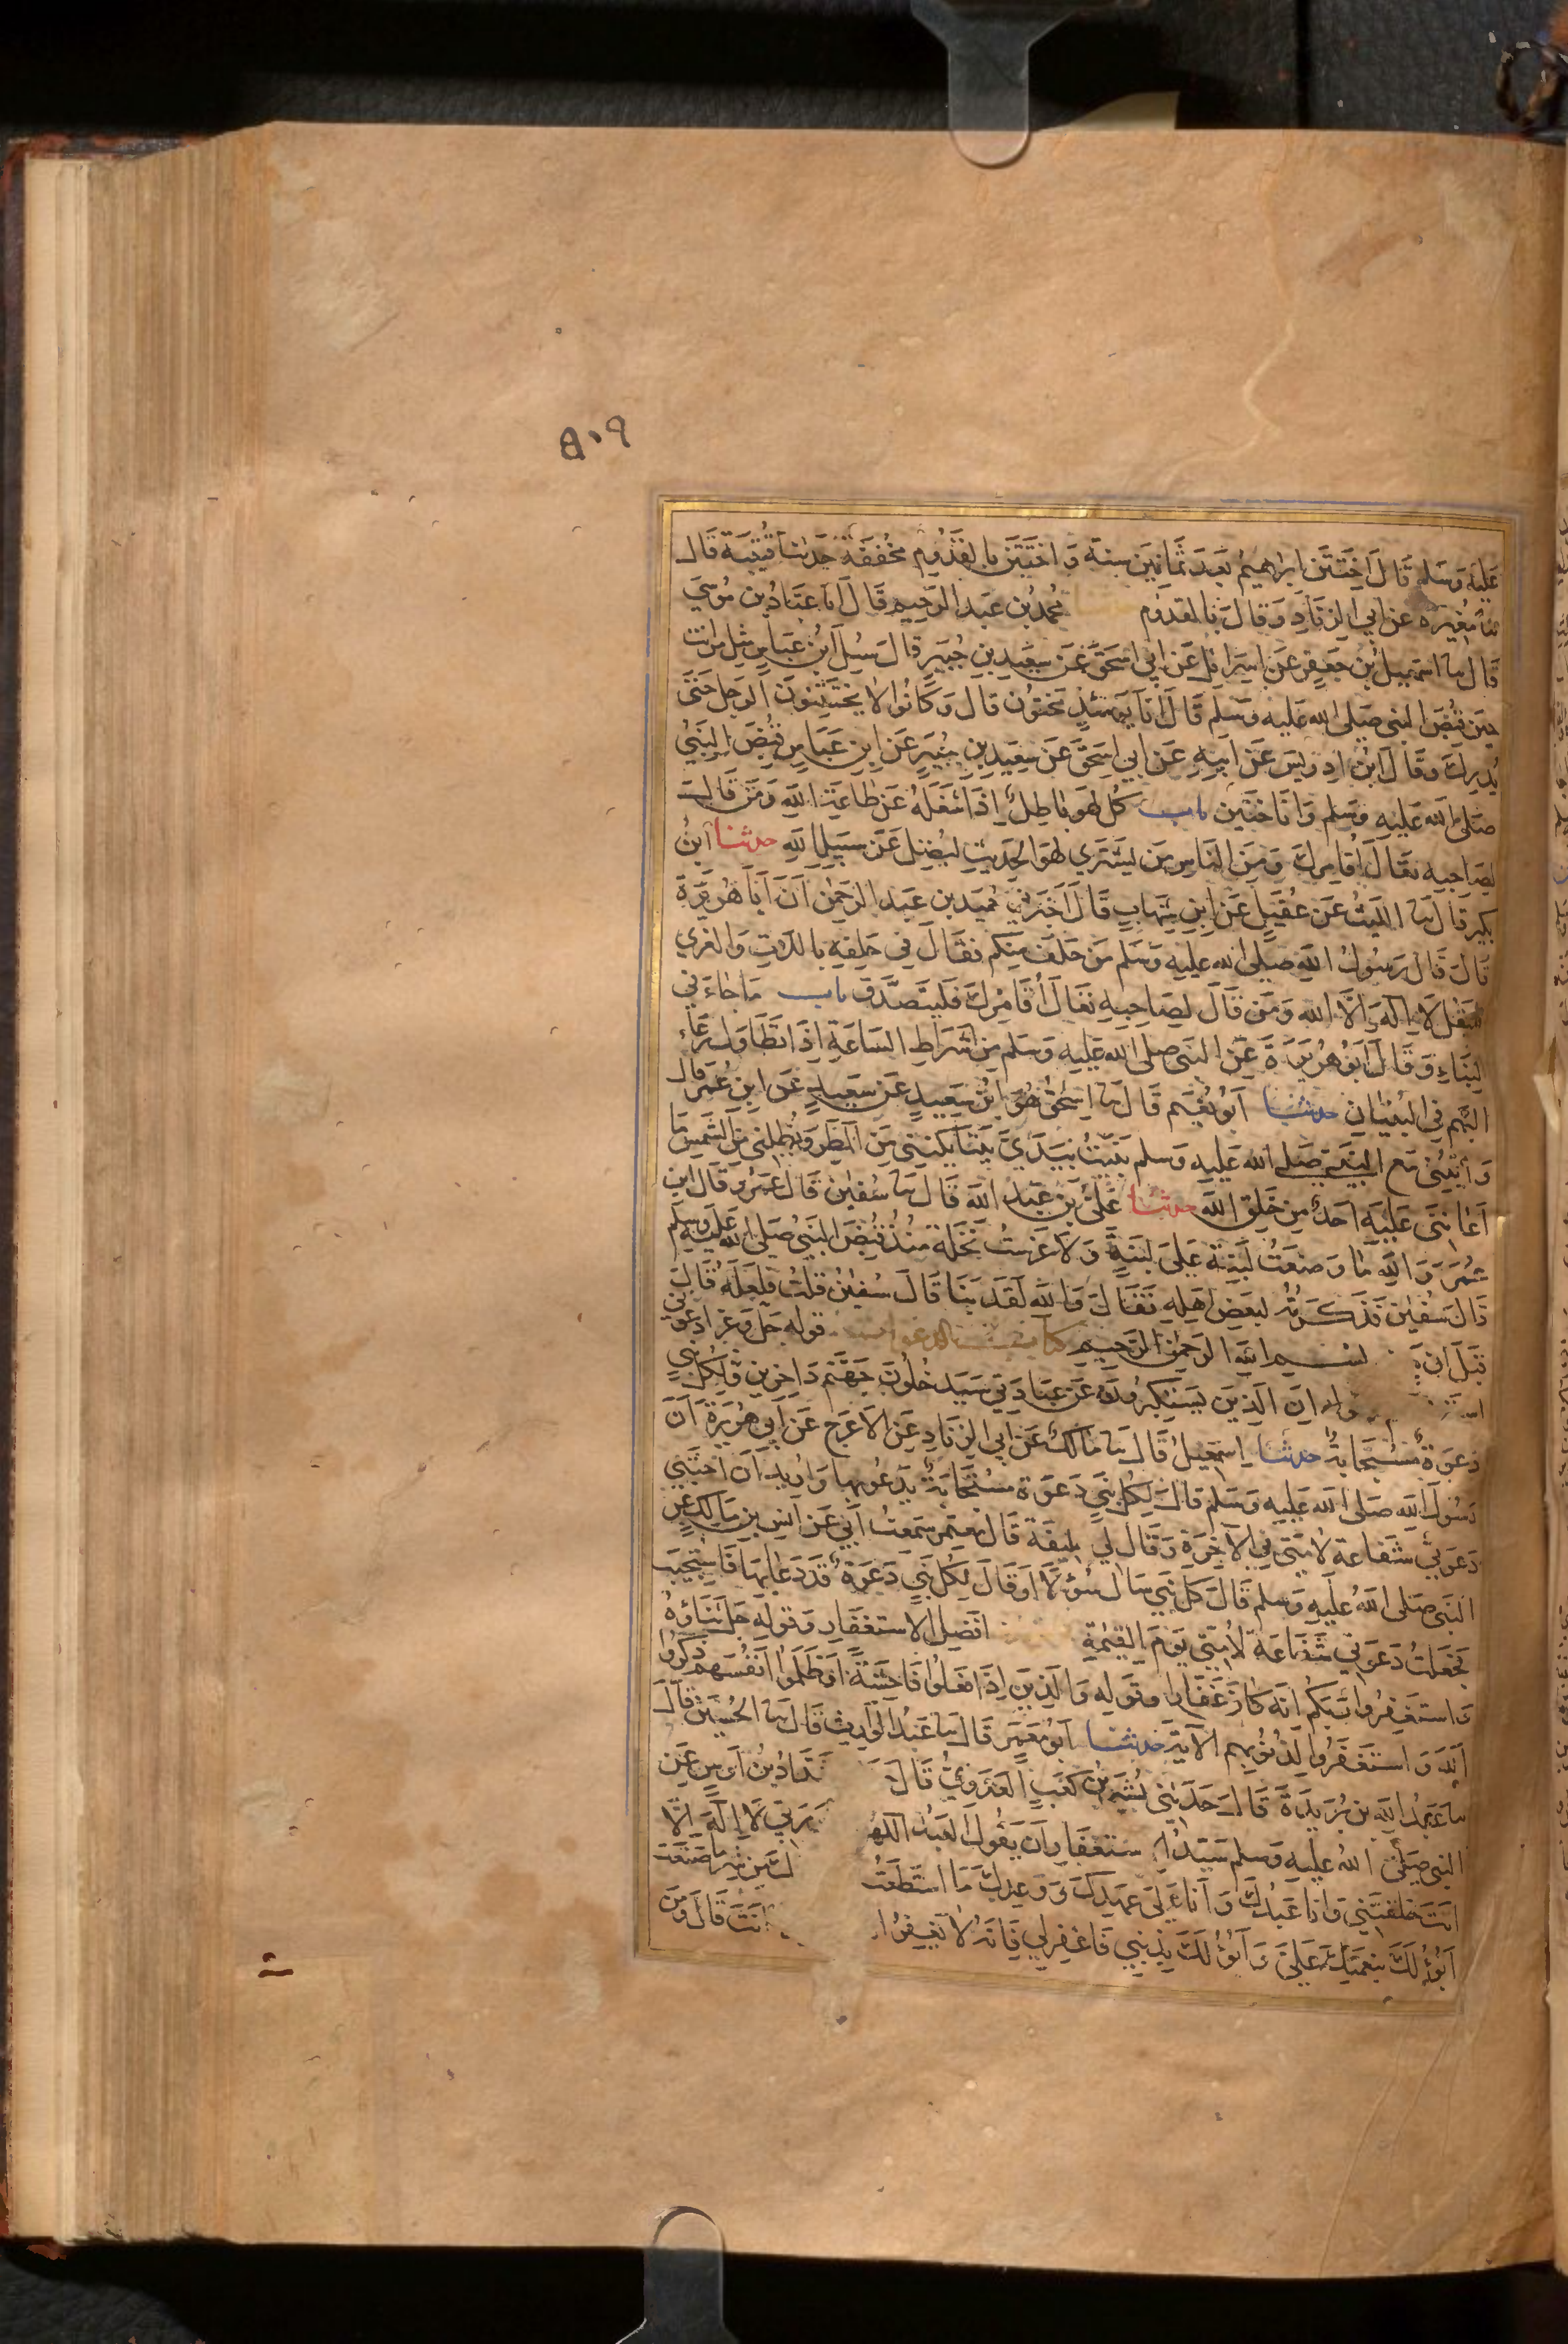 ٥٠٩
عليه وسلم قال اختتن ابراهيم بعد ثمانين سنة واختتن بالقدوم مخففة حدثنا قتيبة قال
ثنا مغيرة عن ابي الزناد وقال بالقدوم محمد بن عبد الرحيم قال انا عباد بن موسى
قال ثنا اسمعيل بن جعفر عن اسرائل عن ابي اسحق عن سعيد بن جبير قال سئل ابن عباس مثل من انت
حين قبض النبي صلى الله عليه وسلم قال انا يومئذ مختون قال وكانوا لا يختتنون الرجل حتى
يدرك وقال ابن ادريس عن ابيه عن ابي اسحق عن سعيد بن جبير عن ابن عباس قبض النبي
صلى الله عليه وسلم وانا ختين باب كل لهو باطل اذا شغله عن طاعة الله ومن قال
لصاحبه تعال اقامرك ومن الناس من ليشتري لهو الحديث ليضل عن سبيل الله حدثنا ابن
بكير قال ثنا الليث عن عقيل عن ابن شهاب قال اخبرني حميد بن عبد الرحمن ان ابا هريرة
قال قال رسول الله صلى الله عليه وسلم من حلف منكم فقال في حلفه باللات والعزي
فليقل لا اله الا الله ومن قال لصاحبه تعال اقامرك فليتصدق باب ما جاء في
البناء وقال ابو هريرة عن النبي صلى الله عليه وسلم من اشراط الساعة اذا تطاول رعاء
البهم في البنيان حدثنا ابو نعيم قال ثنا اسحق هو ابن سعيد عن سعيد عن ابن عمر قال
رايتني مع النبي صلى الله عليه وسلم بنيت بيدي بيتا يكنني من المطر ويظلني من الشمس ما
اعانني عليه احد من خلق الله حدثنا علي بن عبد الله قال ثنا سفين قال عمرو قال ابن
عمر والله ما وضعت لبنة على لبنة ولا غرست نخلة منذ قبض النبي صلى الله عليه وسلم
قال سفين فذكرته لبعض اهله فقال والله لقد بنا قال سفين قلت فلعله قال
قبل ان بسم الله الرحمن الرحيم كتاب الدعوات قوله جل وعز ادعوني
ان الذين يستكبرون عن عبادتي سيدخلون جهنم داخرين ولكل نبي
دعوة مستجابة حدثنا اسمعيل قال ثنا مالك عن ابي الزناد عن الاعرج عن ابي هريرة ان
رسول الله صلى الله عليه وسلم قال لكل نبي دعوة مستجابة يدعو بها واريد ان اختبي
دعوتي شفاعة لامتي في الاخرة وقال لي خليفة قال معتمر سمعت ابي عن انس بن مالك عن
النبي صلى الله عليه وسلم قال كل نبي سال سؤلا او قال لكل نبي دعوة قد دعا بها فاستجيب
فجعلت دعوتي شفاعة لامتي يوم القيمة افضل الاستغفار وقوله جل ثناؤه
واستغفروا ربكم انه كان غفارا وقوله والذين اذا فعلوا فاحشة او ظلموا انفسهم ذكروا
الله واستغفروا لذنوبهم الاية حدثنا ابو معمر قال ثنا عبد الوارث قال ثنا الحسين قال
ثنا عبد الله بن بريدة قال حدثني بشير بن كعب العدوي قال شداد بن اوس عن
النبي صلى الله عليه وسلم سيد استغفار ان يقول العبد اللهم ربي لا اله الا
انت خلقتني وانا عبدك وانا على عهدك ووعدك ما استطعت من شر ما صنعت
ابوء لك بنعمتك علي وابوء لك بذنبي فاغفر لي فانه لا يغفر انت قال ومن